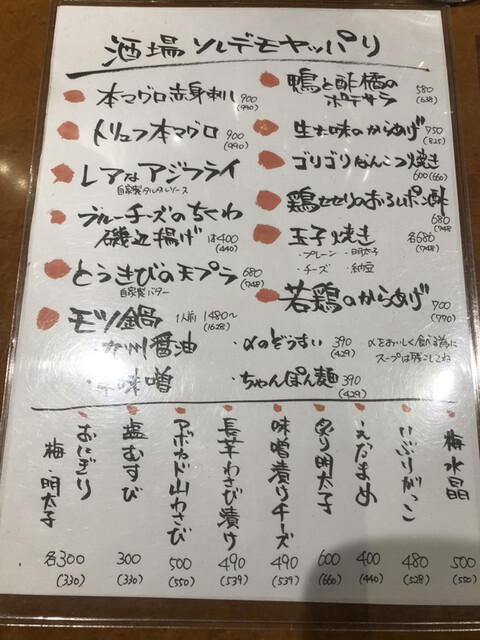 酒場ソレデモヤッパリ
本マグロ赤身刺し 900
(990)
トリュフ本マグロ 900
(990)
レアなアジフライ
自家製タルタルソース
ブルーチーズのちくわ
磯辺揚げ は400
(440)
とうきびの天プラ 680
(748)
自家製バター
モツ鍋 1人前 1480〜
(1628)
・九州醤油
味噌
鴨と酢橘の
ポテサラ 580
(638)
生姜味のからあげ 750
(825)
ゴリゴリなんこつ焼き
600(660)
鶏セセリのおろしポン酢
680
(748)
玉子焼き 各680
(748)
・プレーン ・明太子
・チーズ ・納豆
若鶏のからあげ 700
(770)
・〆のぞうすい 390
(429)
・ちゃんぽん麺 390
(429)
〆をおいしく食べる為に
スープは残してね
梅水晶 500
(550)
いぶりがっこ 480
(528)
えだまめ 400
(440)
炙り明太子 600
(660)
味噌漬けチーズ 490
(539)
長芋わさび漬け 490
(539)
アボカド山わさび 500
(550)
塩むすび 300
(330)
おにぎり
梅・明太子 各300
(330)